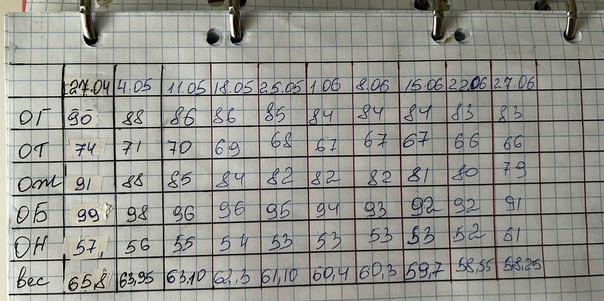 27.04 4.05 11.05 18.05 25.05 1.06 8.06 15.06 22.06 27.06
ОГ 90 88 86 86 85 84 84 84 83 83
ОТ 74 71 70 69 68 67 67 67 66 66
Ож 91 88 85 84 82 82 82 81 80 79
ОБ 99 98 96 96 95 94 93 92 92 91
ОН 57, 56 55 54 53 53 53 53 52 51
вес 65,8 63,95 63,10 62,3 61,10 60,4 60,3 59,7 58,55 58,25